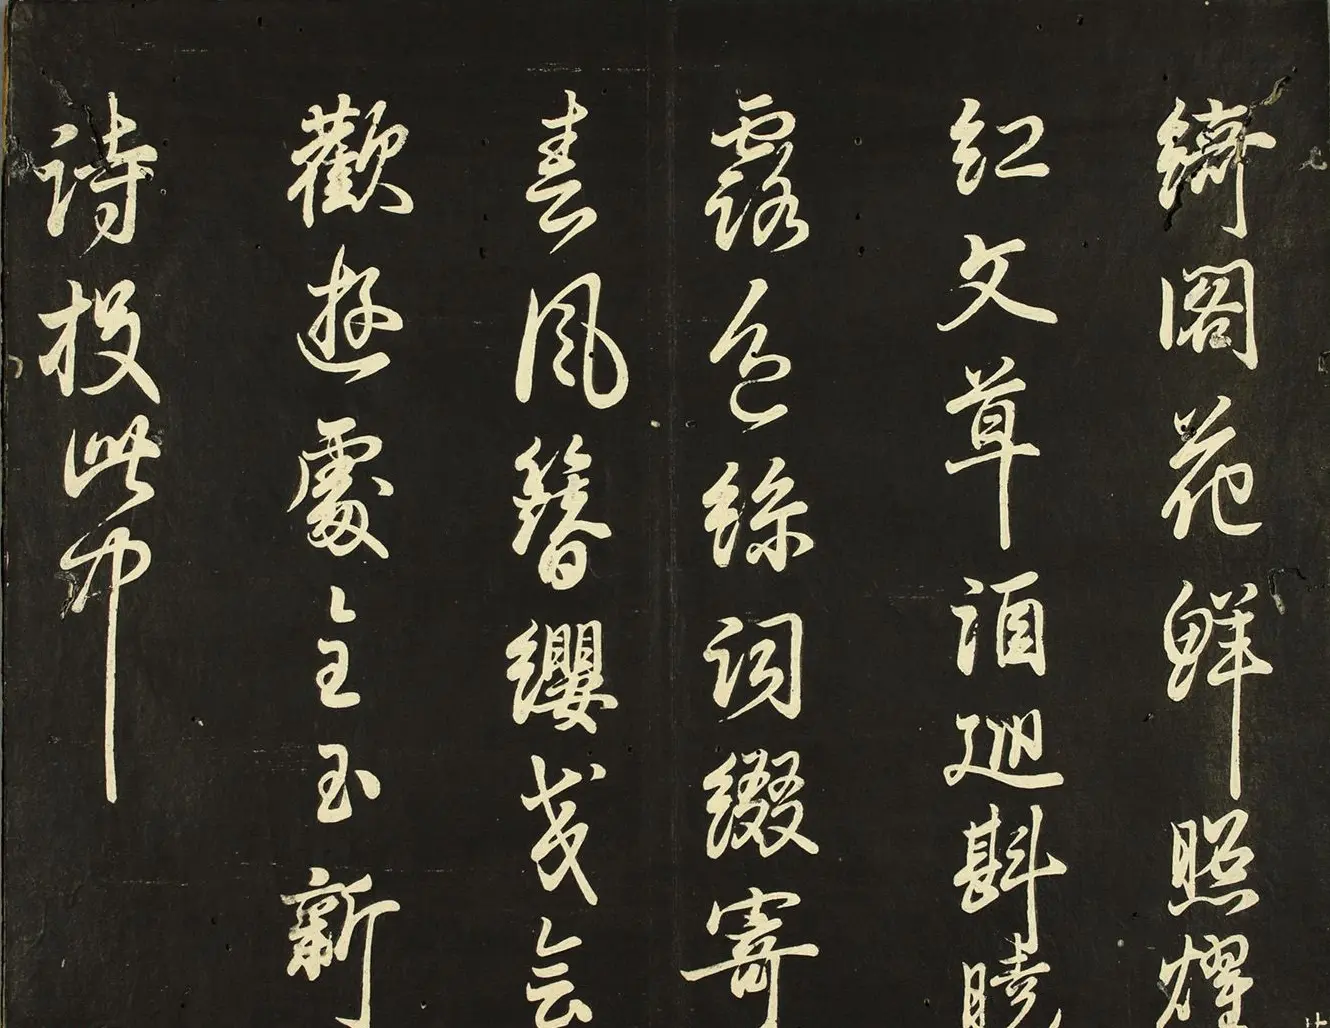 綺閣花鮮照耀
紅文草詶迴斟曉
露色絲詞綴寄
春風簪纓幾会
歡遊處全玉新
詩投此中